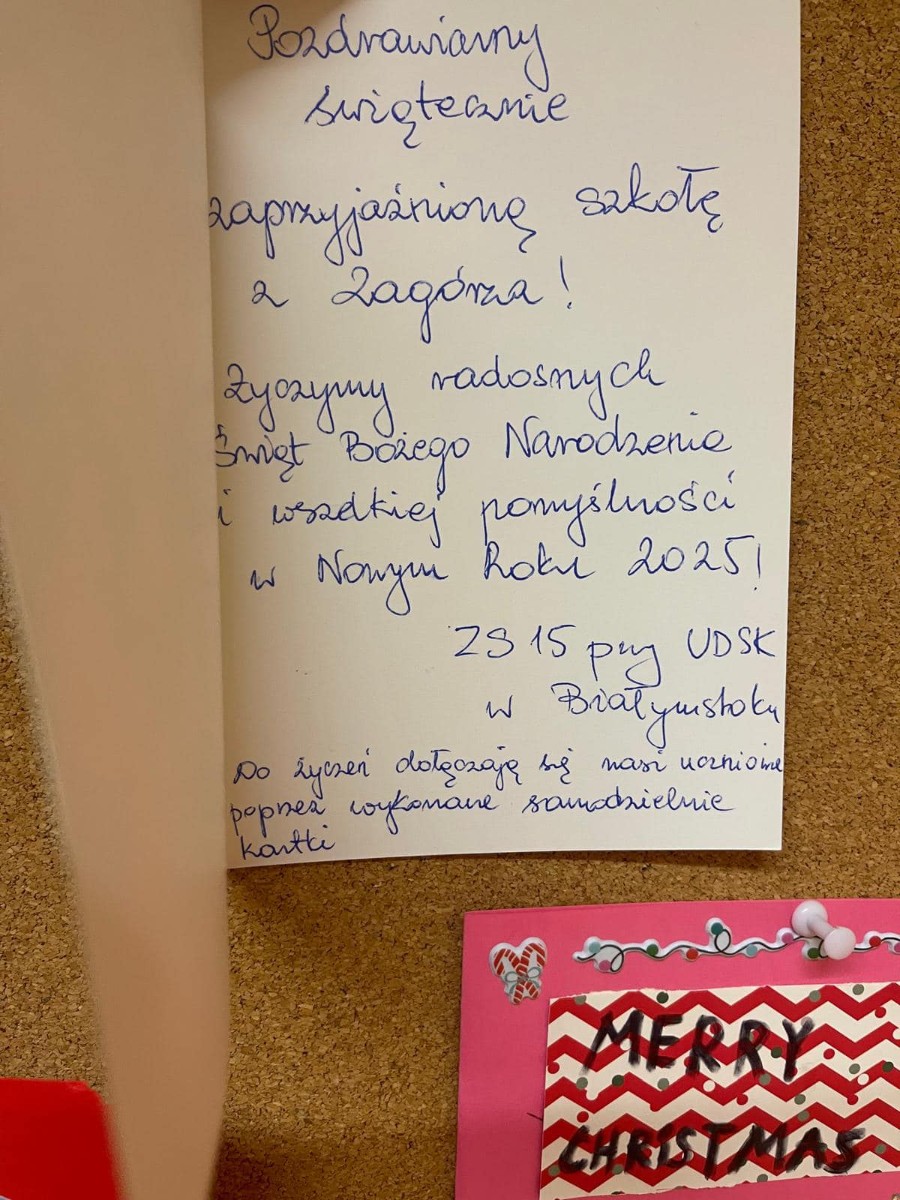 Pozdrawiamy
świątecznie
zaprzyjaźnioną szkołę
z Zagórza!
Życzymy radosnych
Świąt Bożego Narodzenia
i wszelkiej pomyślności
w Nowym Roku 2025!
ZS 15 przy UDSK
w Białymstoku
Do życzeń dołączają się nasi uczniowie
poprzez wykonane samodzielnie
kartki
MERRY
CHRISTMAS